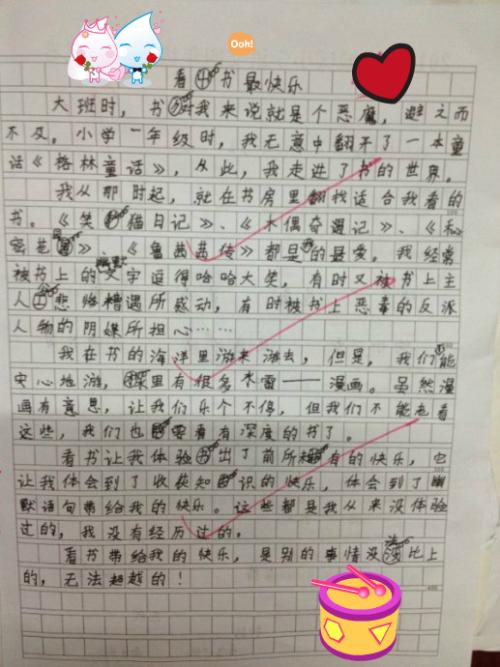 Ooh!
看书最快乐
大班时，书对我来说就是个恶魔，避之而
不及。小学一年级时，我无意中翻开了一本童
话《格林童话》，从此，我走进了书的世界。
我从那时起，就在书房里翻找适合我看的
书。《笑猫日记》、《木偶奇遇记》、《秘
密花园》、《鲁西西传》都是我的最爱。我经常
被书上的幽默文字逗得哈哈大笑，有时又被书上主
人公悲惨糟遇所感动，有时被书上恶毒的反派
人物的阴谋所担心……
我在书的海洋里游来游去，但是，我们不能
安心地游，那里有很多水雷——漫画。虽然漫
画有意思，让我们乐个不停，但我们不能老看
这些，我们也需要看有深度的书了。
看书让我体验出了前所有的快乐，它
让我体会到了收获知识的快乐，体会到了幽
默语句带给我的快乐。这些都是我从来没体验
过的，我没有经历过的。
看书带给我的快乐，是别的事情没法比上
的，无法超越的！